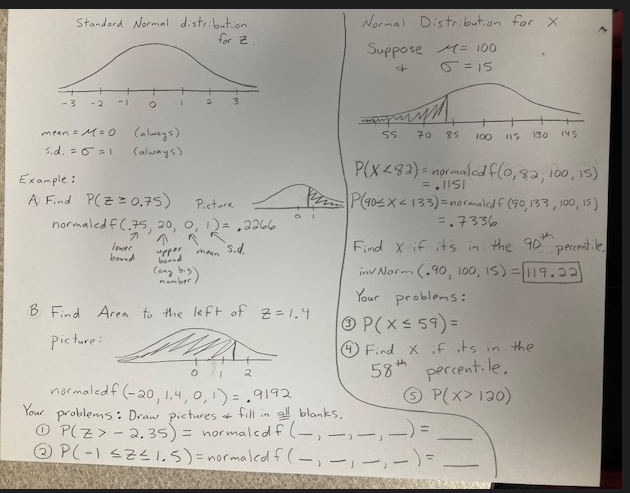 Standard Normal distribution
for Z.
-3 -2 -1 0 1 2 3
mean = μ = 0 (always)
s.d. = σ = 1 (always)
Example:
A. Find P(Z ≥ 0.75) Picture
0 1
normalcdf(.75, 20, 0, 1) = .2266
lower bound upper bound (any big number) mean s.d.
B. Find Area to the left of Z = 1.4
picture:
0 1 2
normalcdf(-20, 1.4, 0, 1) = .9192
Your problems: Draw pictures & fill in all blanks.
① P(Z > -2.35) = normalcdf(_, _, _, _) = ___
② P(-1 ≤ Z ≤ 1.5) = normalcdf(_, _, _, _) = ___
Normal Distribution for X
Suppose μ = 100
& σ = 15
55 70 85 100 115 130 145
P(X < 82) = normalcdf(0, 82, 100, 15)
= .1151
P(90 ≤ X < 133) = normalcdf(90, 133, 100, 15)
= .7336
Find X if its in the 90th percentile.
invNorm(.90, 100, 15) = 119.22
Your problems:
③ P(X ≤ 59) =
④ Find X if its in the
58th percentile.
⑤ P(X > 120)